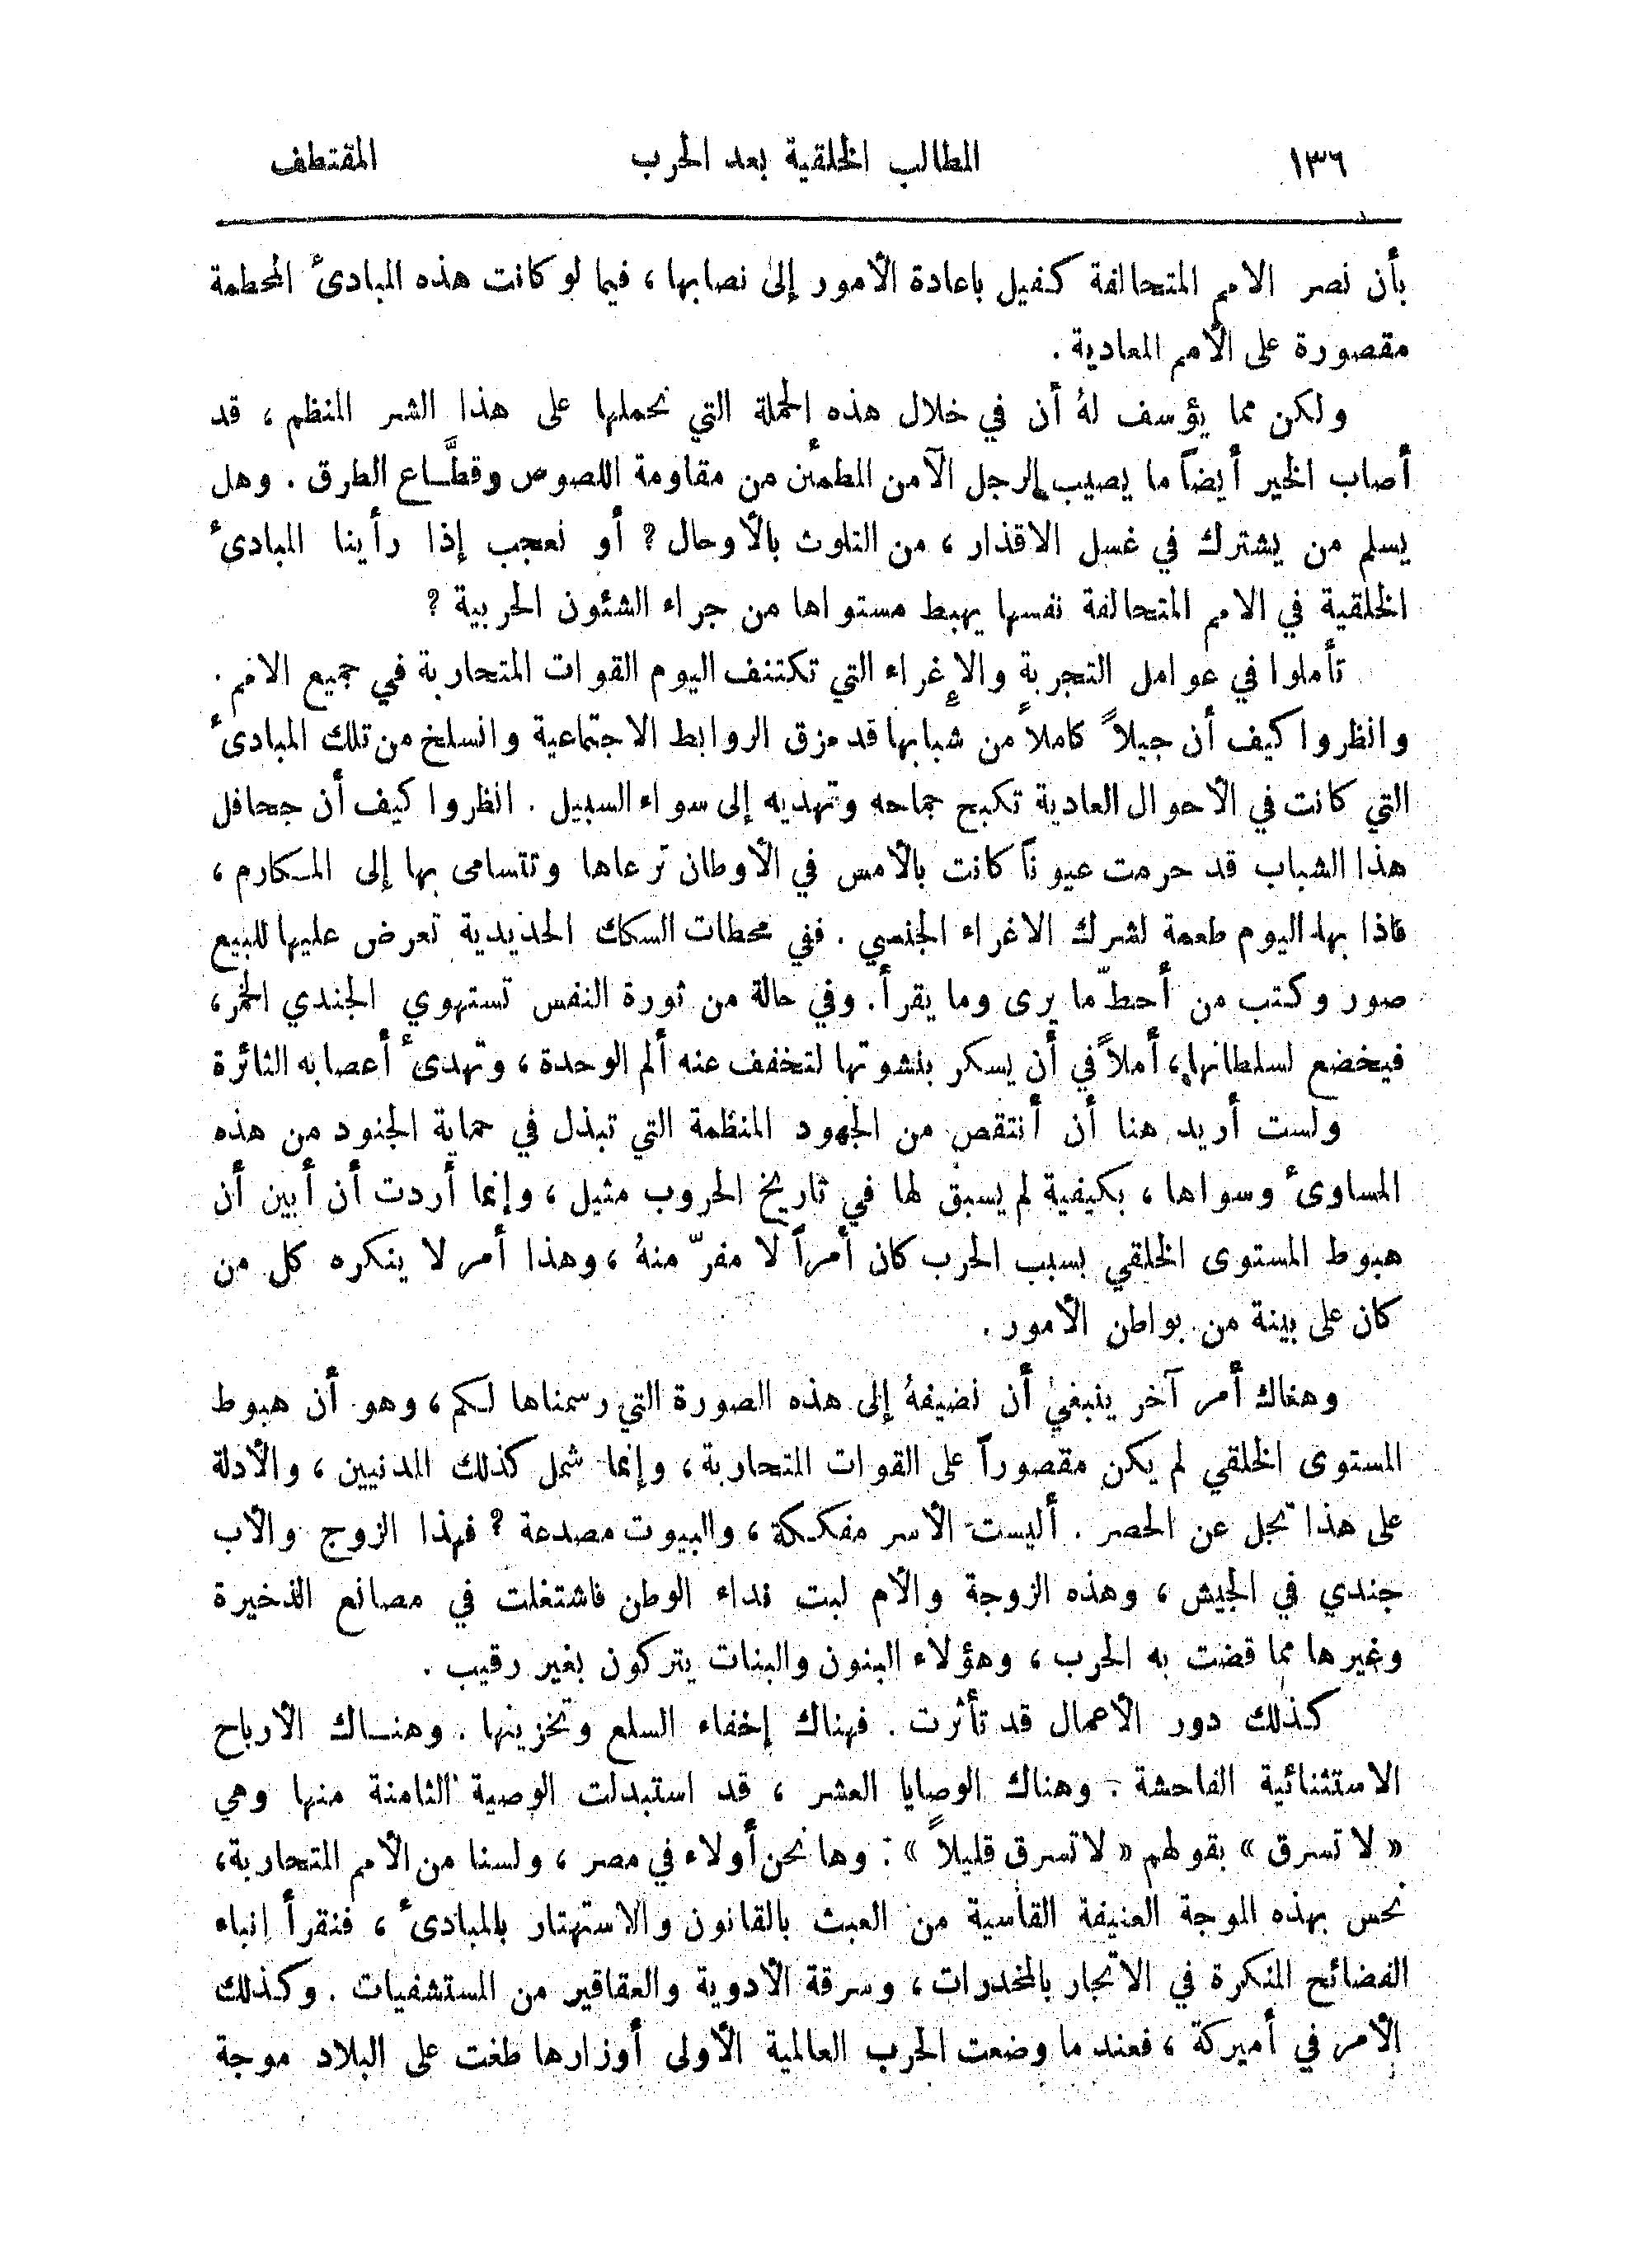 ١٣٦ المطالب الخلقية بعد الحرب المقتطف
بأن نصر الامم المتحالفة كفيل باعادة الأمور إلى نصابها ، فيما لو كانت هذه المبادئ المحطمة
مقصورة على الأمم المعادية .
ولكن مما يؤسف لهُ أن في خلال هذه الحملة التي نحملها على هذا الشر المنظم ، قد
أصاب الخير أيضاً ما يصيب الرجل الآمن المطمئن من مقاومة اللصوص وقطَّاع الطرق . وهل
يسلم من يشترك في غسل الاقذار ، من التلوث بالأوحال ؟ أو نعجب إذا رأينا المبادئ
الخلقية في الامم المتحالفة نفسها يهبط مستواها من جراء الشئون الحربية ؟
تأملوا في عوامل التجربة والإغراء التي تكتنف اليوم القوات المتحاربة في جميع الامم .
وانظروا كيف أن جيلاً كاملاً من شبابها قد مزق الروابط الاجتماعية وانسلخ من تلك المبادئ
التي كانت في الأحوال العادية تكبح جماحه وتهديه إلى سواء السبيل . انظروا كيف أن جحافل
هذا الشباب قد حرمت عيوناً كانت بالأمس في الأوطان ترعاها وتتسامى بها إلى المكارم ،
فاذا بها اليوم طعمة لشرك الاغراء الجنسي . ففي محطات السكك الحديدية تعرض عليها للبيع
صور وكتب من أحطّ ما يرى وما يقرأ . وفي حالة من ثورة النفس تستهوي الجندي الخمر ،
فيخضع لسلطانها ، أملاً في أن يسكر بنشوتها لتخفف عنه ألم الوحدة ، وتهدئ أعصابه الثائرة
ولست أريد هنا أن أنتقص من الجهود المنظمة التي تبذل في حماية الجنود من هذه
المساوئ وسواها ، بكيفية لم يسبق لها في تاريخ الحروب مثيل ، وإنما أردت أن أبين أن
هبوط المستوى الخلقي بسبب الحرب كان أمراً لا مفرّ منهُ ، وهذا أمر لا ينكره كل من
كان على بينة من بواطن الأمور .
وهناك أمر آخر ينبغي أن نضيفهُ إلى هذه الصورة التي رسمناها لكم ، وهو أن هبوط
المستوى الخلقي لم يكن مقصوراً على القوات المتحاربة ، وإنما شمل كذلك المدنيين ، والأدلة
على هذا تجل عن الحصر . أليست الأسر مفككة ، والبيوت مصدعة ؟ فهذا الزوج والأب
جندي في الجيش ، وهذه الزوجة والأم لبت نداء الوطن فاشتغلت في مصانع الذخيرة
وغيرها مما قضت به الحرب ، وهؤلاء البنون والبنات يتركون بغير رقيب .
كذلك دور الأعمال قد تأثرت . فهناك إخفاء السلع وتخزينها . وهناك الأرباح
الاستثنائية الفاحشة . وهناك الوصايا العشر ، قد استبدلت الوصية الثامنة منها وهي
« لا تسرق » بقولهم « لا تسرق قليلاً » : وها نحن أولاء في مصر ، ولسنا من الأمم المتحاربة ،
نحس بهذه الموجة العنيفة القاسية من العبث بالقانون والاستهتار بالمبادئ ، فنقرأ انباء
الفضائح المنكرة في الاتجار بالمخدرات ، وسرقة الأدوية والعقاقير من المستشفيات . وكذلك
الأمر في أميركة ، فعند ما وضعت الحرب العالمية الأولى أوزارها طغت على البلاد موجة